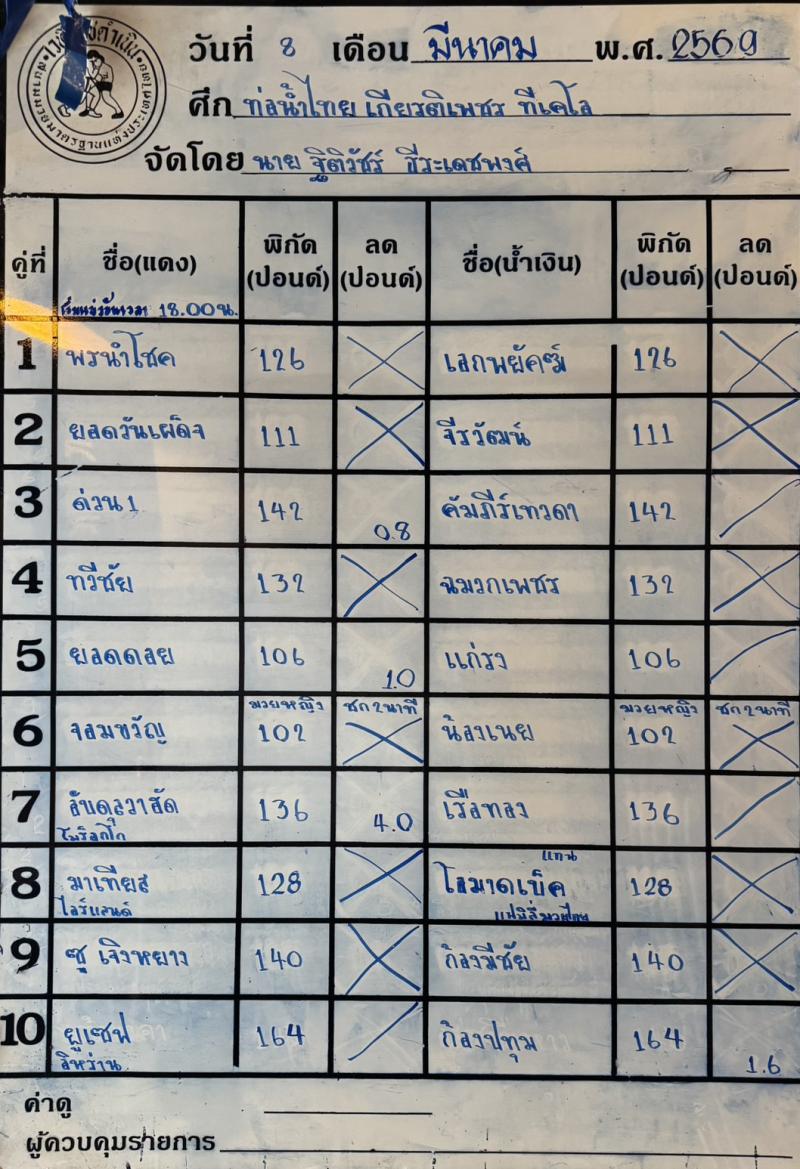 วันที่ 8 เดือน มีนาคม พ.ศ. 2569
ศึก ท่อน้ำไทย เกียรติเพชร ทีเคโอ
จัดโดย นาย ฐิติวัชร์ ชีระเดชพงศ์
คู่ที่ ชื่อ(แดง) พิกัด (ปอนด์) ลด (ปอนด์) ชื่อ(น้ำเงิน) พิกัด (ปอนด์) ลด (ปอนด์)
18.00 น.
1 พรนำโชค 126 เอกพยัคฆ์ 126
2 ยอดวันเผด็จ 111 จีรวัฒน์ 111
3 ด่วน 1 142 0.8 คัมภีร์เทวดา 142
4 ทวีชัย 132 ฉมวกเพชร 132
5 ยอดดอย 106 1.0 แก่รง 106
มวยหญิง ชก 2 นาที มวยหญิง ชก 2 นาที
6 จอมขวัญ 102 น้องเนย 102
7 อับดุลวาฮัด 136 4.0 เรือทอง 136
โมร็อกโก
แทน
8 มาเทียส 128 โอมาดเบ็ค 128
ไอร์แลนด์
9 ซู เจิงหยาง 140 ก้องมีชัย 140
10 ยูเซฟ 164 ก้องปทุม 164 1.6
อิหร่าน
ค่าดู
ผู้ควบคุมรายการ